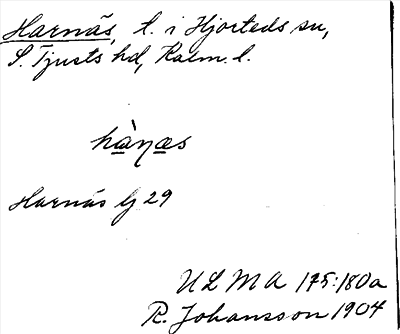 Harnäs, t. i Hjorteds sn,
S. Tjusts hd, Kalm. l.
hàṇæs
Harnäs Gj 29
ULMA 175:180a
R. Johansson 1904